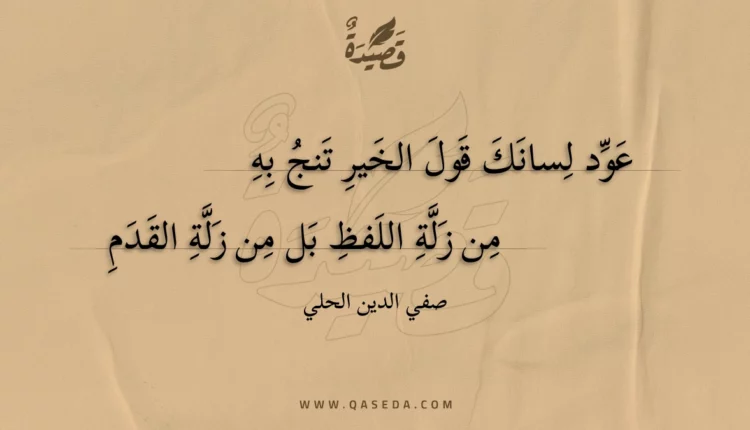 قَصِيدَةٌ
عَوِّد لِسانَكَ قَولَ الخَيرِ تَنجُ بِهِ
مِن زَلَّةِ اللَفظِ بَل مِن زَلَّةِ القَدَمِ
صفي الدين الحلي
WWW.QASEDA.COM